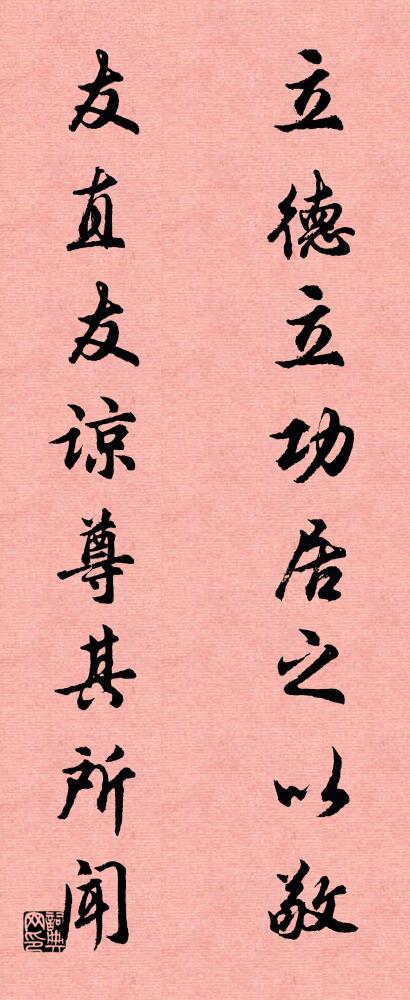 立德立功居之以敬
友直友谅尊其所闻
詞典网印